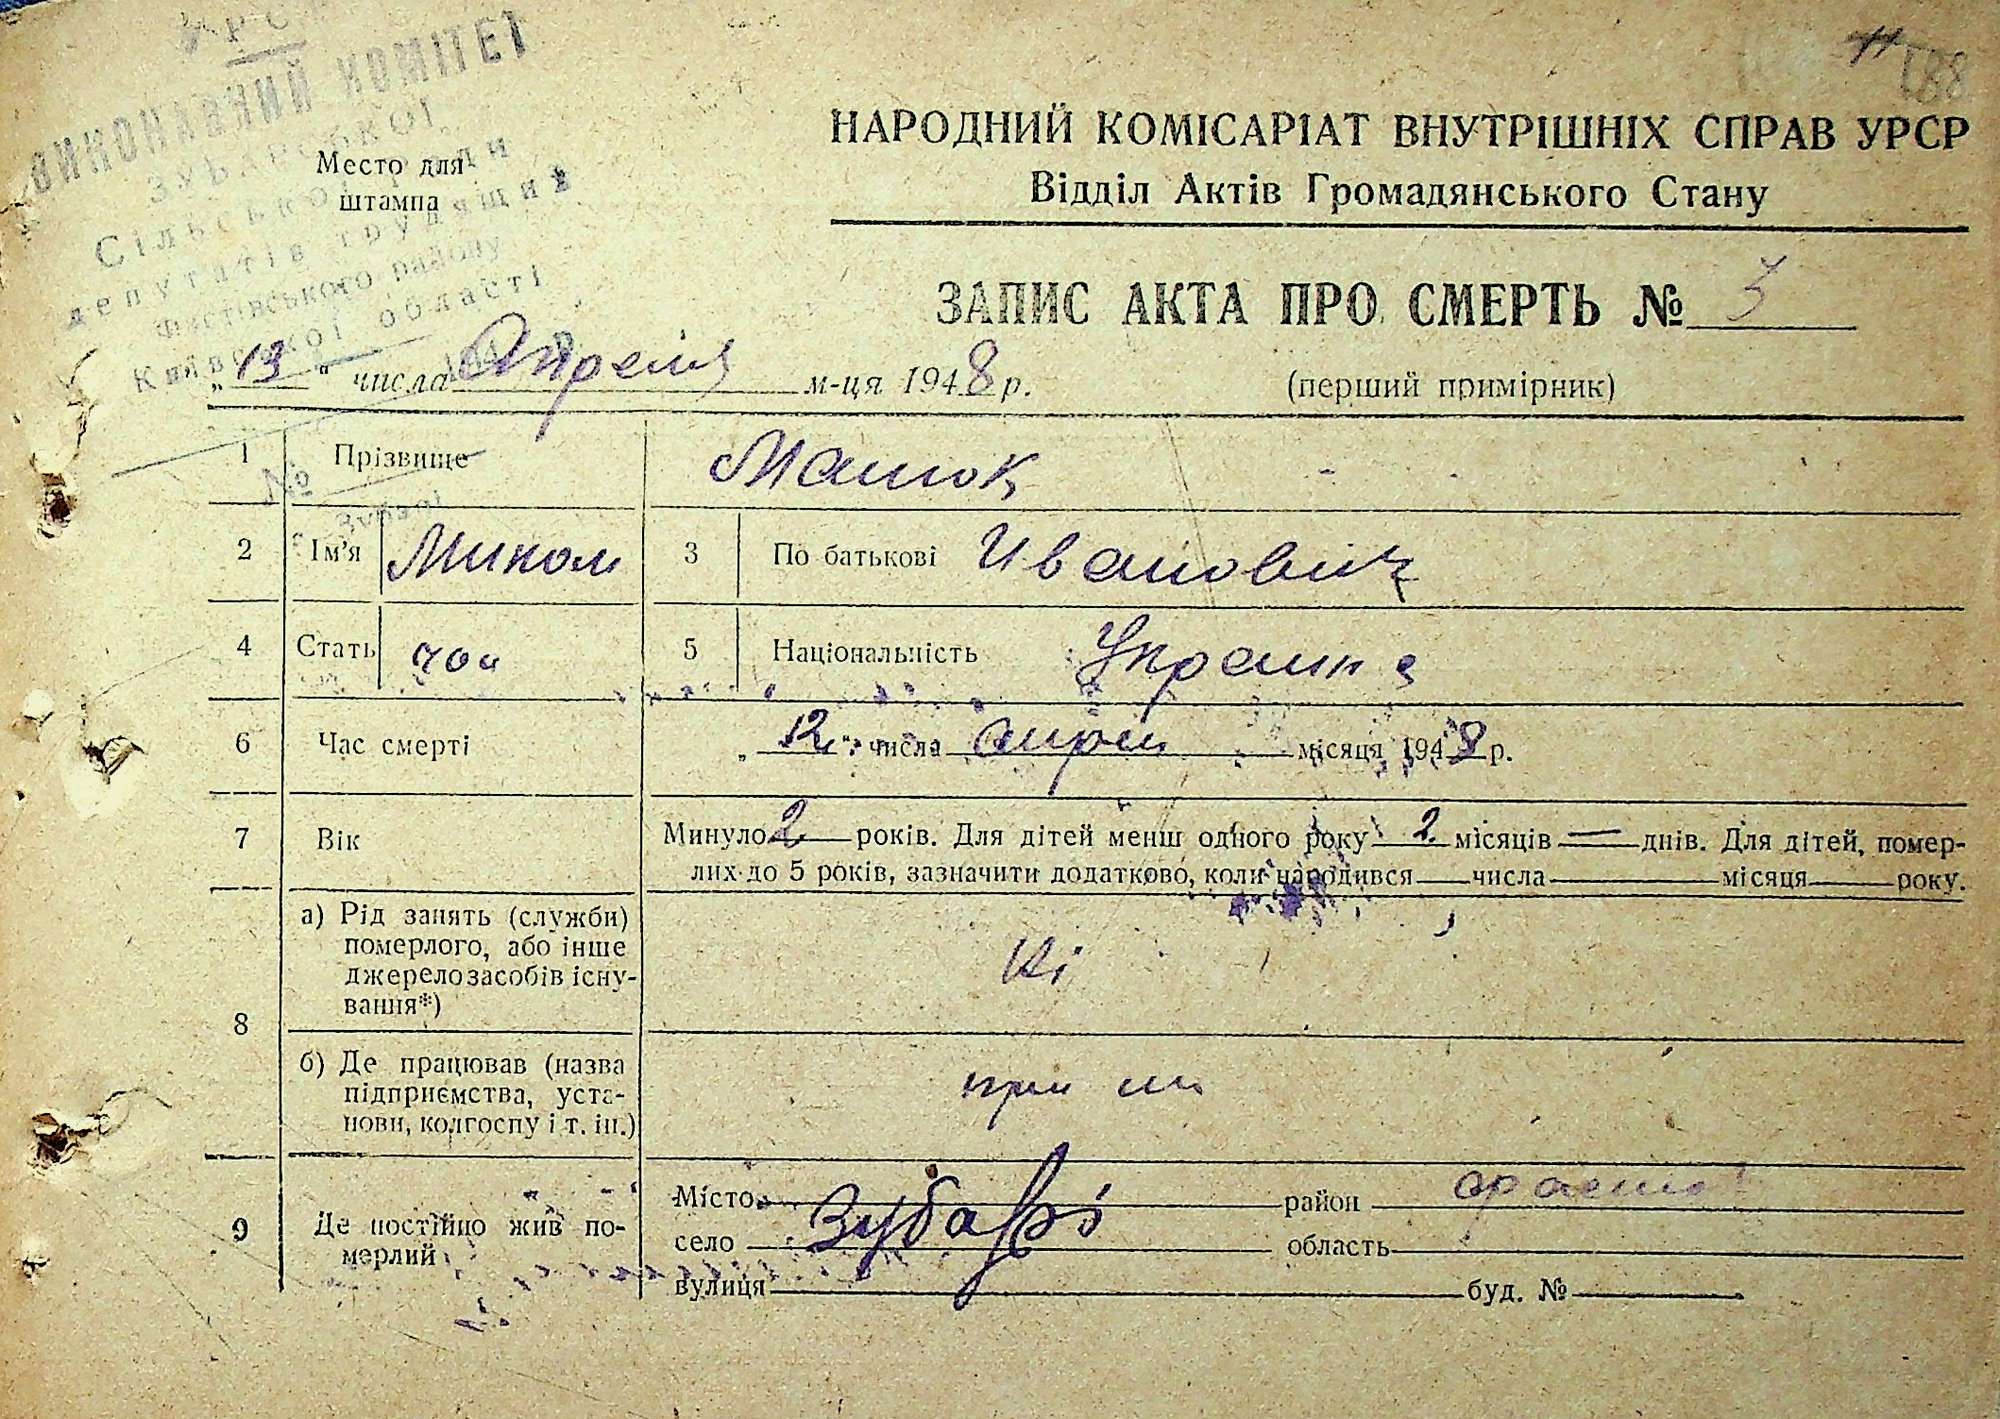 УРСР
ВИКОНАВЧИЙ КОМІТЕТ
Сільської ради
депутатів трудящих
Фастівського району
Київської області
Место для
штампа
11
188
НАРОДНИЙ КОМІСАРІАТ ВНУТРІШНІХ СПРАВ УРСР
Відділ Актів Громадянського Стану
ЗАПИС АКТА ПРО СМЕРТЬ № 3
„13" числа Апреля м-ця 1948 р.
(перший примірник)
1 Прізвище Машок
№
2 Ім'я Микол 3 По батькові Иванович
4 Стать чол 5 Національність Украин
6 Час смерті „12" числа апрел місяця 1948 р.
7 Вік Минуло 2 років. Для дітей менш одного року 2 місяців — днів. Для дітей, помер-
лих до 5 років, зазначити додатково, коли народився числа місяця року.
8 а) Рід занять (служби)
померлого, або інше
джерело засобів існу-
вання*)
б) Де працював (назва
підприємства, уста-
нови, колгоспу і т. ін.)
при
9 Де постійно жив по-
мерлий
Місто район
село Зубарі область
вулиця буд. №